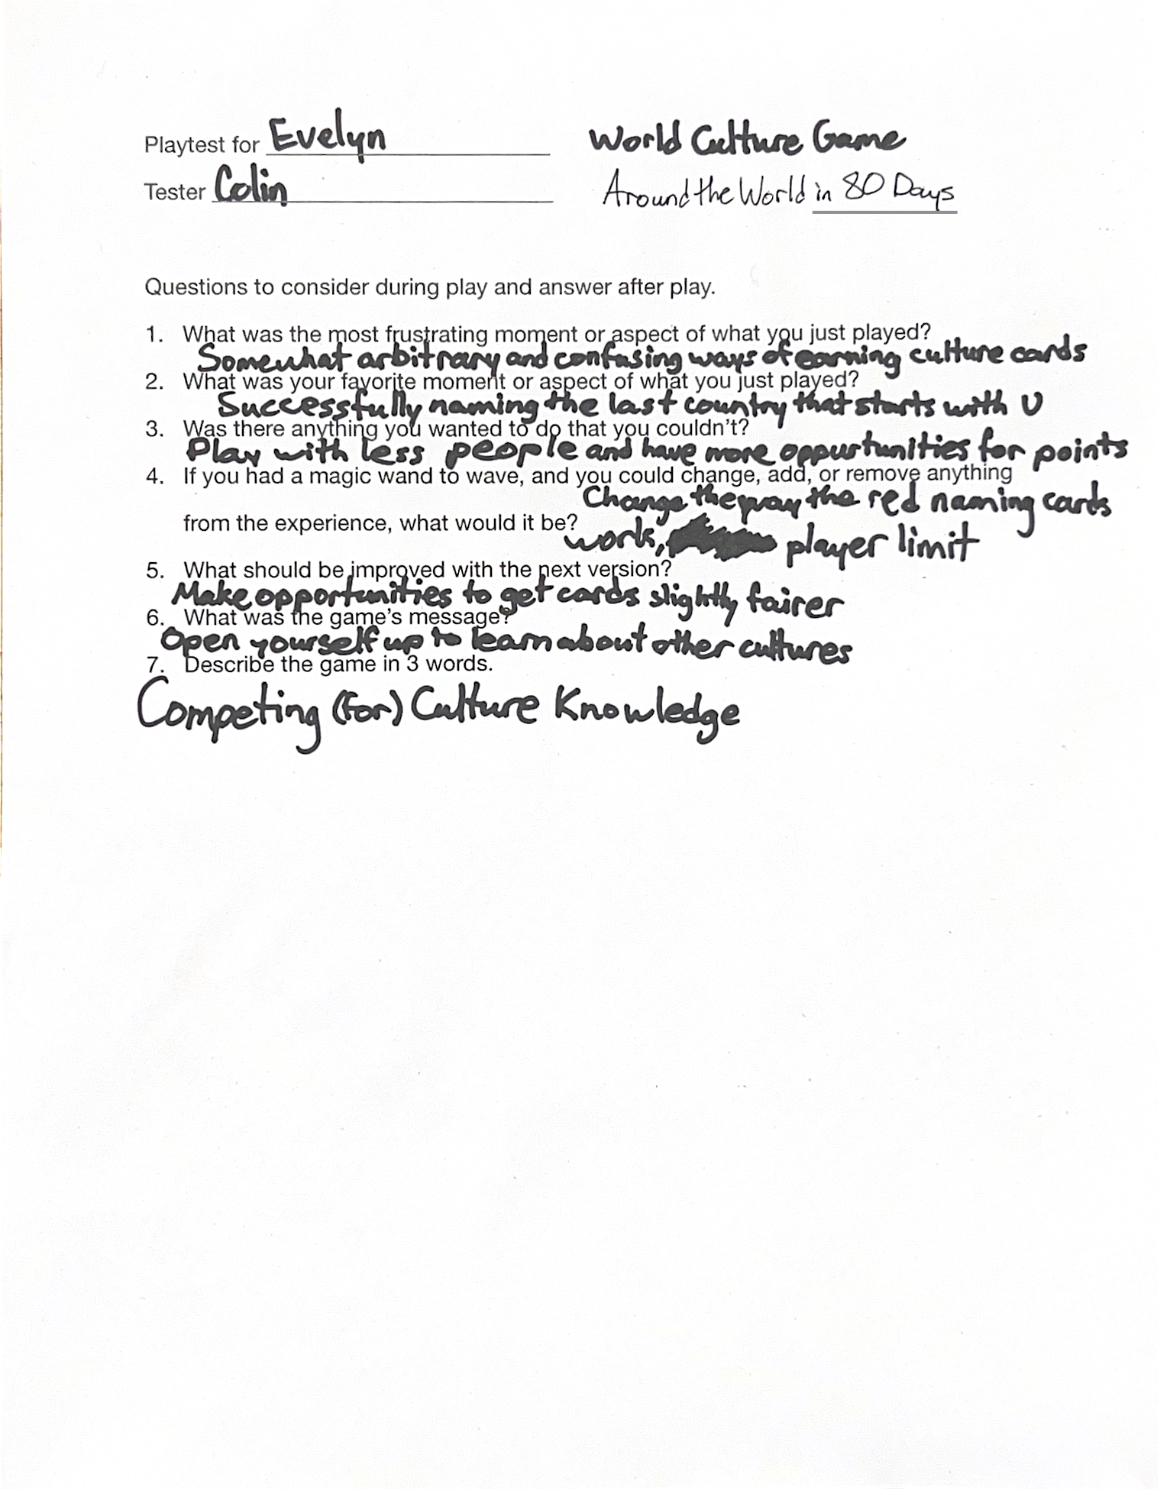 Playtest for Evelyn World Culture Game
Tester Colin Around the World in 80 Days
Questions to consider during play and answer after play.
1. What was the most frustrating moment or aspect of what you just played?
Somewhat arbitrary and confusing ways of earning culture cards
2. What was your favorite moment or aspect of what you just played?
Successfully naming the last country that starts with U
3. Was there anything you wanted to do that you couldn't?
Play with less people and have more oppurtunities for points
4. If you had a magic wand to wave, and you could change, add, or remove anything
Change the way the red naming cards
from the experience, what would it be?
work, player limit
5. What should be improved with the next version?
Make opportunities to get cards slightly fairer
6. What was the game's message?
Open yourself up to learn about other cultures
7. Describe the game in 3 words.
Competing (for) Culture Knowledge